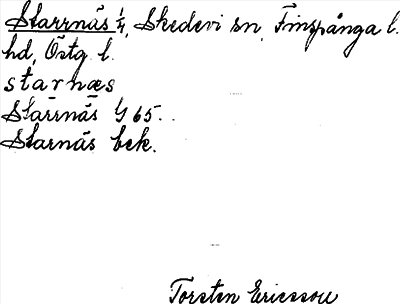 Starrnäs 1/4, Skedevi sn, Finspånga l.
hd, Östg. l.
starnæs
Starrnäs G 65.
Starnäs bek.
Torsten Ericsson